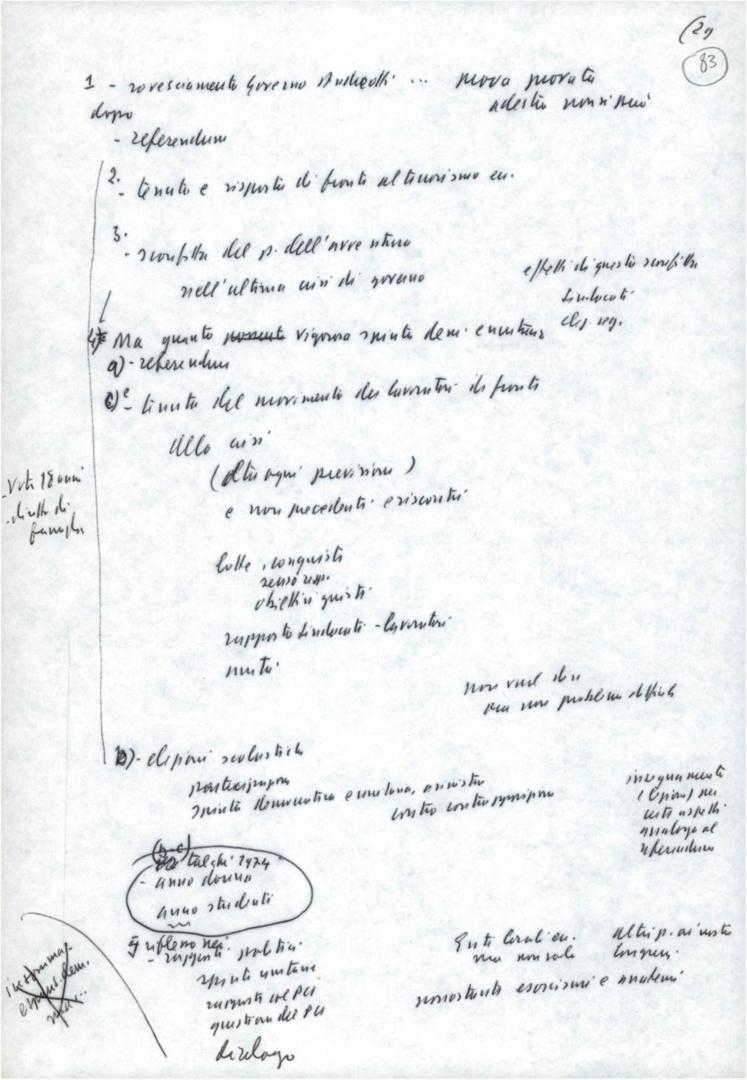 (29
83
1 - rovesciamento Governo Andreotti ... prova provata
a destra non si può
dopo
- referendum
2.
- tenuta e risposta di fronte al terrorismo ecc.
3.
- sconfitta del p. dell'avventura
nell'ultima crisi di governo
effetti di questa sconfitta
sindacati
elez. reg.
4) Ma quanto vigorosa spinta dem. e unitaria
a) - referendum
c) e - tenuta del movimento dei lavoratori di fronte
alla crisi
(oltre ogni previsione)
e non precedenti e riscontri
- Voto 18 anni
- diritto di
famiglia
lotte, conquiste
senso resp.
obiettivi giusti
rapporto sindacati - lavoratori
unità
non vuol dire
che non problemi difficili
b) - elezioni scolastiche
partecipazione
spinta democratica e unitaria, a sinistra
contro contrapposizione
insegnamento
(elezioni) per
certi aspetti
analogo al
referendum
(b-c)
1974
- anno donna
anno studenti
5) riflesso nei
- rapporti politici
spinte unitarie
rapporti col PCI
questione del PCI
dialogo
Enti locali ecc.
ma non solo
nonostante esorcismi e anatemi